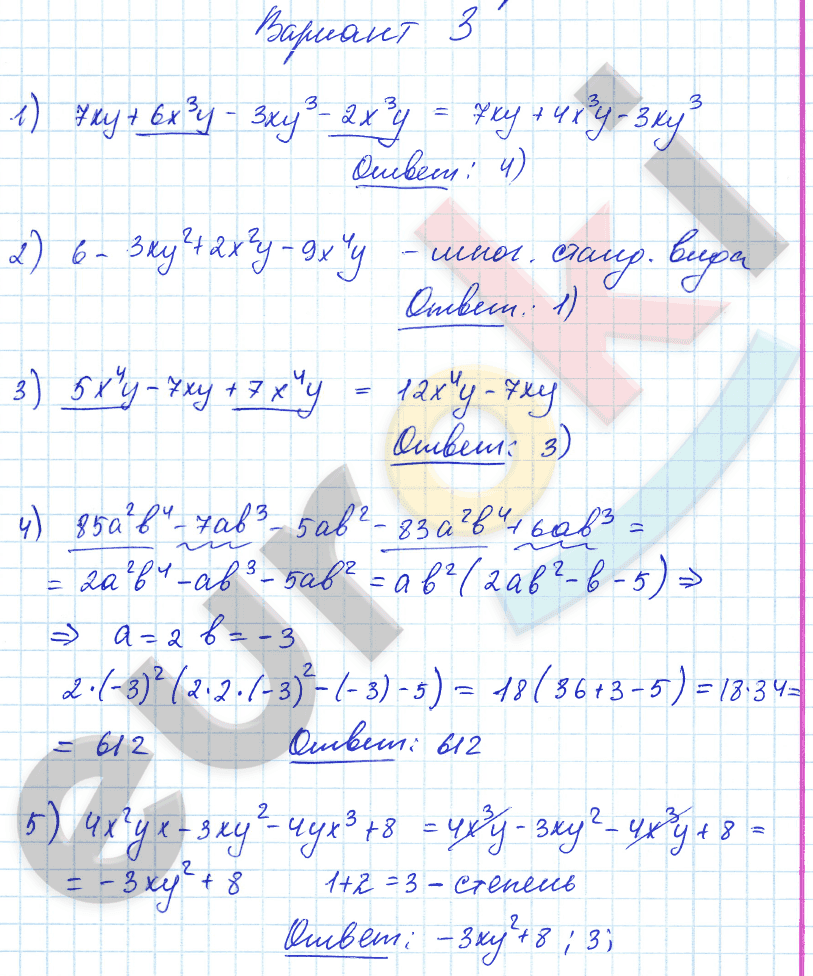 Вариант 3
1) 7xy + 6x³y - 3xy³ - 2x³y = 7xy + 4x³y - 3xy³
Ответ: 4)
2) 6 - 3xy² + 2x²y - 9x⁴y - мног. станд. вида
Ответ: 1)
3) 5x⁴y - 7xy + 7x⁴y = 12x⁴y - 7xy
Ответ: 3)
4) 85a²b⁴ - 7ab³ - 5ab² - 83a²b⁴ + 6ab³ =
= 2a²b⁴ - ab³ - 5ab² = ab²(2ab² - b - 5) ⇒
⇒ a = 2 b = -3
2·(-3)²(2·2·(-3)² - (-3) - 5) = 18(36 + 3 - 5) = 18·34 =
= 612 Ответ: 612
5) 4x²yx - 3xy² - 4yx³ + 8 = 4x³y - 3xy² - 4x³y + 8 =
= -3xy² + 8 1+2 = 3 - степень
Ответ: -3xy² + 8 ; 3;
euroki